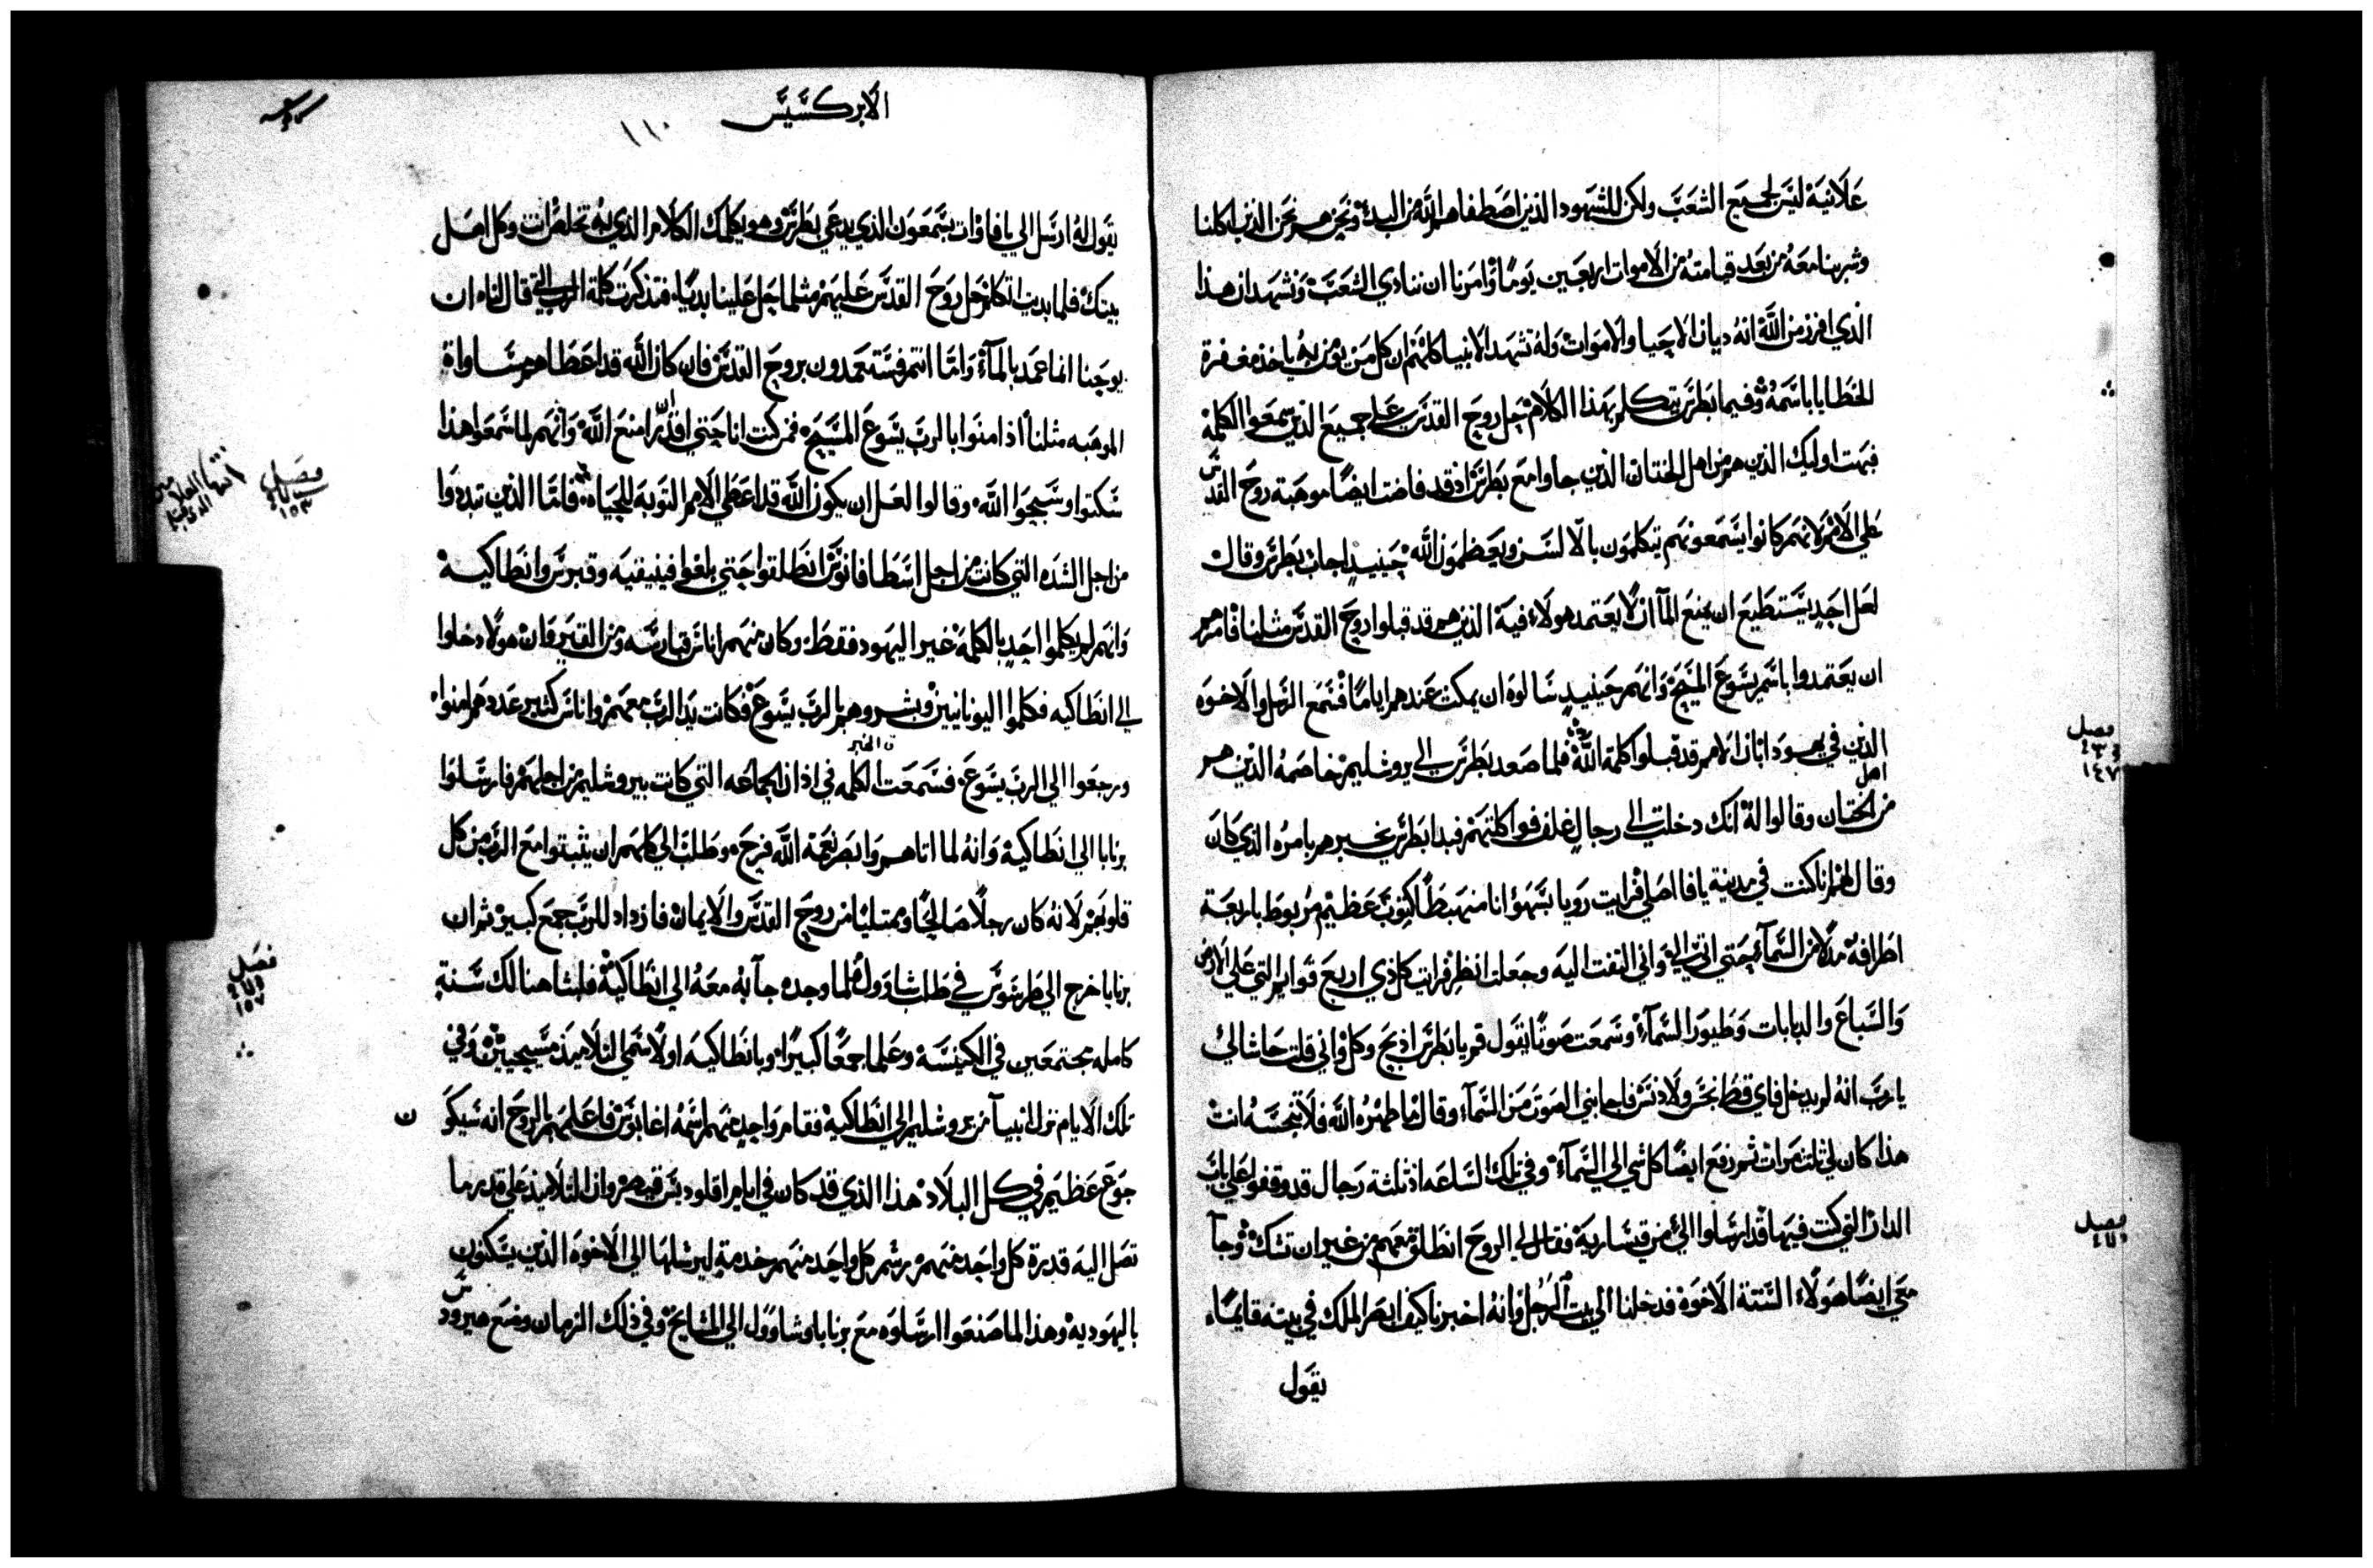 علانية ليس لجميع الشعب ولكن للشهود الذين اصطفاهم الله من البدء ونحن هم نحن الذين اكلنا
وشربنا معه من بعد قيامته من الاموات اربعين يوما وامرنا ان ننادي الشعب ونشهد ان هذا
الذي افرز من الله انه ديان الاحيا والاموات وله تشهد الانبيا كلهم ان كل من يومن به ياخذ مغفرة
الخطايا باسمه وفيما بطرس يتكلم بهذا الكلام حل روح القدس على جميع الذين سمعوا الكلمة
فبهت اوليك الذين هم من اهل الختان الذين جاوا مع بطرس اذ قد فاضت ايضا موهبة روح القدس
علي الامم لانهم كانوا يسمعونهم يتكلمون بالالسن ويعظمون الله حينيذ اجاب بطرس وقال
لعل احد يستطيع ان يمنع الما ان لا يعتمد هولاء فيه الذين هم قد قبلوا روح القدس مثلنا فامرهم
ان يعتمدوا باسم يسوع المسيح وانهم حينيذ سالوه ان يمكث عندهم اياما فسمع الرسل والاخوه
فصل
١٤٧
الذين في يهودا بان الامم قد قبلوا كلمة الله فلما صعد بطرس الى يروشليم خاصمه الذين هم
من اهل الختان وقالوا له انك دخلت الى رجال غلف فواكلتهم فبدا بطرس يخبرهم بامره الذي كان
وقال لهم انا كنت في مدينة يافا اصلي فرايت رويا بسهو انا منهبطا كثوب عظيم مربوط باربعة
اطرافه مدلا من السمآء حتى اتى الي واني التفت اليه وجعلت انظر فرايت كل ذي اربع قوايم التي علي الارض
والسباع والدبابات وطيور السمآء وسمعت صوتا يقول قم يا بطرس اذبح وكل واني قلت حاشا لي
يا رب انه لم يدخل فاي قط نجس ولا دنس فاجابني الصوت من السمآء وقال ما طهره الله فلا تنجسه انت
هذا كان لي ثلث مرات ثم رفع ايضا كل شي الي السمآء وفي تلك الساعه اذ ثلثة رجال قد وقفوا علي باب
فصل
الدار التي كنت فيها قد ارسلوا الي من قيسارية فقال لي الروح انطلق معهم من غير ان تشك وجآ
معي ايضا هولاء الستة الاخوة فدخلنا الي بيت الرجل وانه اخبرنا كيف ابصر الملك في بيته قايما
يقول
الابركسيس
١١٠
يقول له ارسل الي يافا وات بسمعون الذي يدعي بطرس وهو يكلمك الكلام الذي به تخلص انت وكل اهل
بيتك فلما بديت اتكلم حل روح القدس عليهم مثلما حل علينا بديا فتذكرت كلمة الرب التي قال لنا ان
يوحنا انما عمد بالمآء واما انتم فستعمدون بروح القدس فان كان الله قد اعطاهم مساواة
الموهبه مثلنا اذ امنوا بالرب يسوع المسيح فمن كنت انا حتي اقدر ان امنع الله وانهم لما سمعوا هذا
فصل
١٥٣
سكتوا وسبحوا الله وقالوا لعل ان يكون الله قد اعطي الامم التوبة للحياه فاما الذين تبددوا
من اجل الشده التي كانت من اجل اسطافانوس انطلقوا حتي بلغوا فينيقيه وقبرس وانطاكيه
وانهم لم يكلموا احد بالكلمة غير اليهود فقط وكان منهم اناس قبارسه ومن القيروان هولا دخلوا
الي انطاكيه فكلموا اليونانيين وبشروهم بالرب يسوع فكانت يد الرب معهم واناس كثير عددهم امنوا
ن الخبر
ورجعوا الي الرب يسوع فسمعت الكلمه في اذان الجماعه التي كانت بيروشليم من اجلهم فارسلوا
برنابا الي انطاكية وانه لما اتاهم وابصر نعمة الله فرح وطلب الي كلهم ان يثبتوا مع الرب من كل
قلوبهم لانه كان رجلا صالحا وممتليا من روح القدس والايمان فازداد للرب جمع كبير ثم ان
فصل
١٥٧
برنابا خرج الي طرسوس في طلب شاوول فلما وجده جآ به معه الي انطاكية فلبثا هنالك سنة
كامله مجتمعين في الكنيسه وعلما جمعا كبيرا وبانطاكيه اولا سمي التلاميذ مسيحيين وفي
تلك الايام نزل انبيآ من يروشليم الي انطاكية فقام واحد منهم اسمه اغابوس فاعلمهم بالروح انه سيكون
جوع عظيم في كل البلاد هذا الذي قد كان في ايام اقلوديس قيصر وان التلاميذ علي قدر ما
تصل اليه قدرة كل واحد منهم رسم كل واحد منهم خدمة ليرسلها الي الاخوه الذين يسكنون
باليهوديه وهذا لما صنعوا ارسلوه مع برنابا وشاوول الي المشايخ وفي ذلك الزمان وضع هيرودس